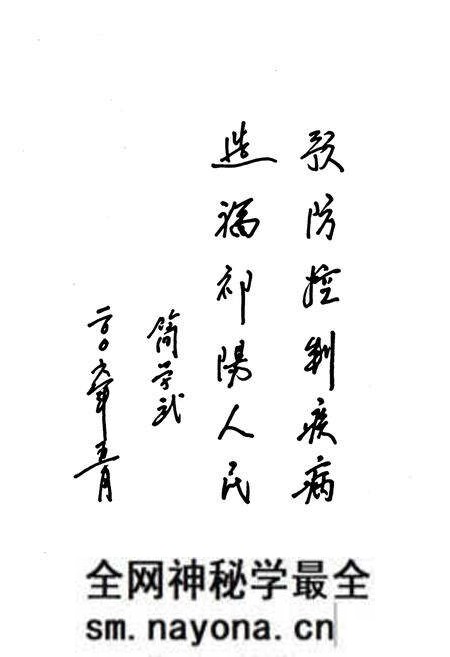 预防控制疾病
造福祁陽人民
简学武
二〇〇六年五月
全网神秘学最全
sm.nayona.cn